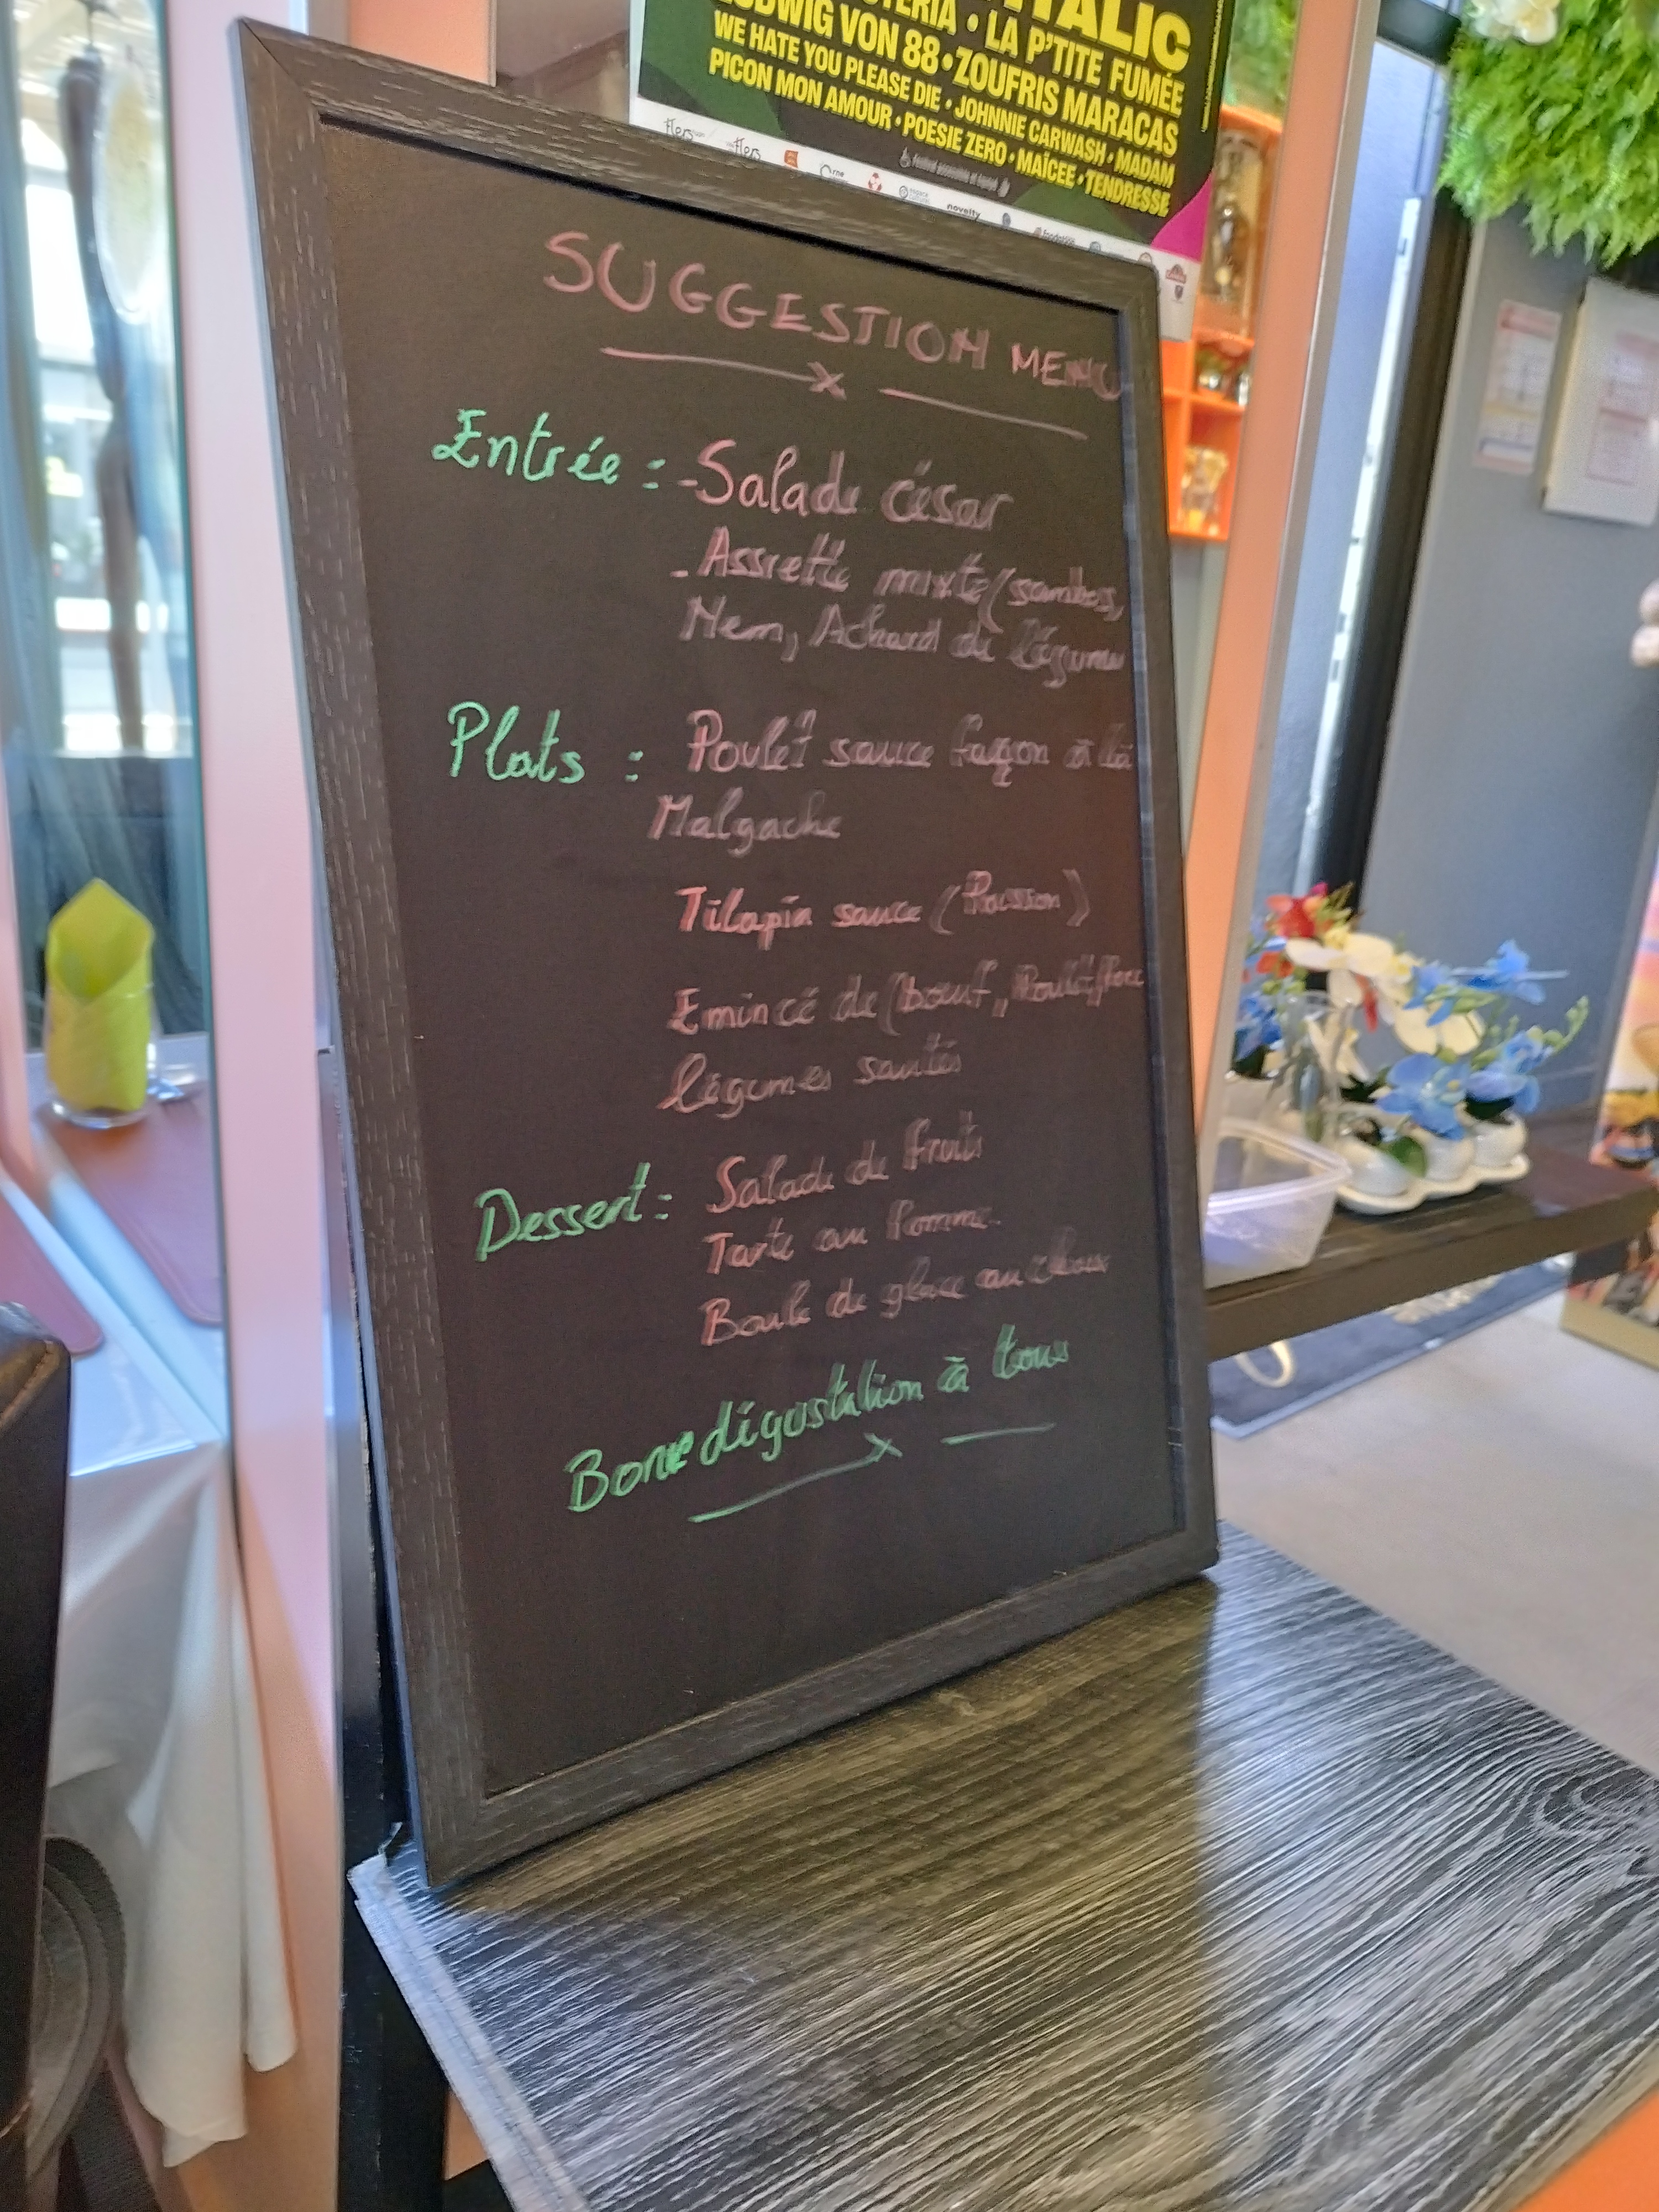 ITALIC
LUDWIG VON 88 • ZOUFRIS MARACAS
LA P'TITE FUMÉE
WE HATE YOU PLEASE DIE • JOHNNIE CARWASH • MADAM
PICON MON AMOUR • POESIE ZERO • MAÏCEE • TENDRESSE
flers
flers
Orne
novelty
SUGGESTION MENU
Entrée : - Salade césar
- Assiette mixte (sambos,
Nem, Achard de légume
Plats : Poulet sauce façon à la
Malgache
Tilapia sauce (Poisson)
Emincé de (boeuf, Poulet,
légumes sautés
Dessert : Salade de fruits
Tarte au Pomme
Boule de glace au choix
Bonne dégustation à tous